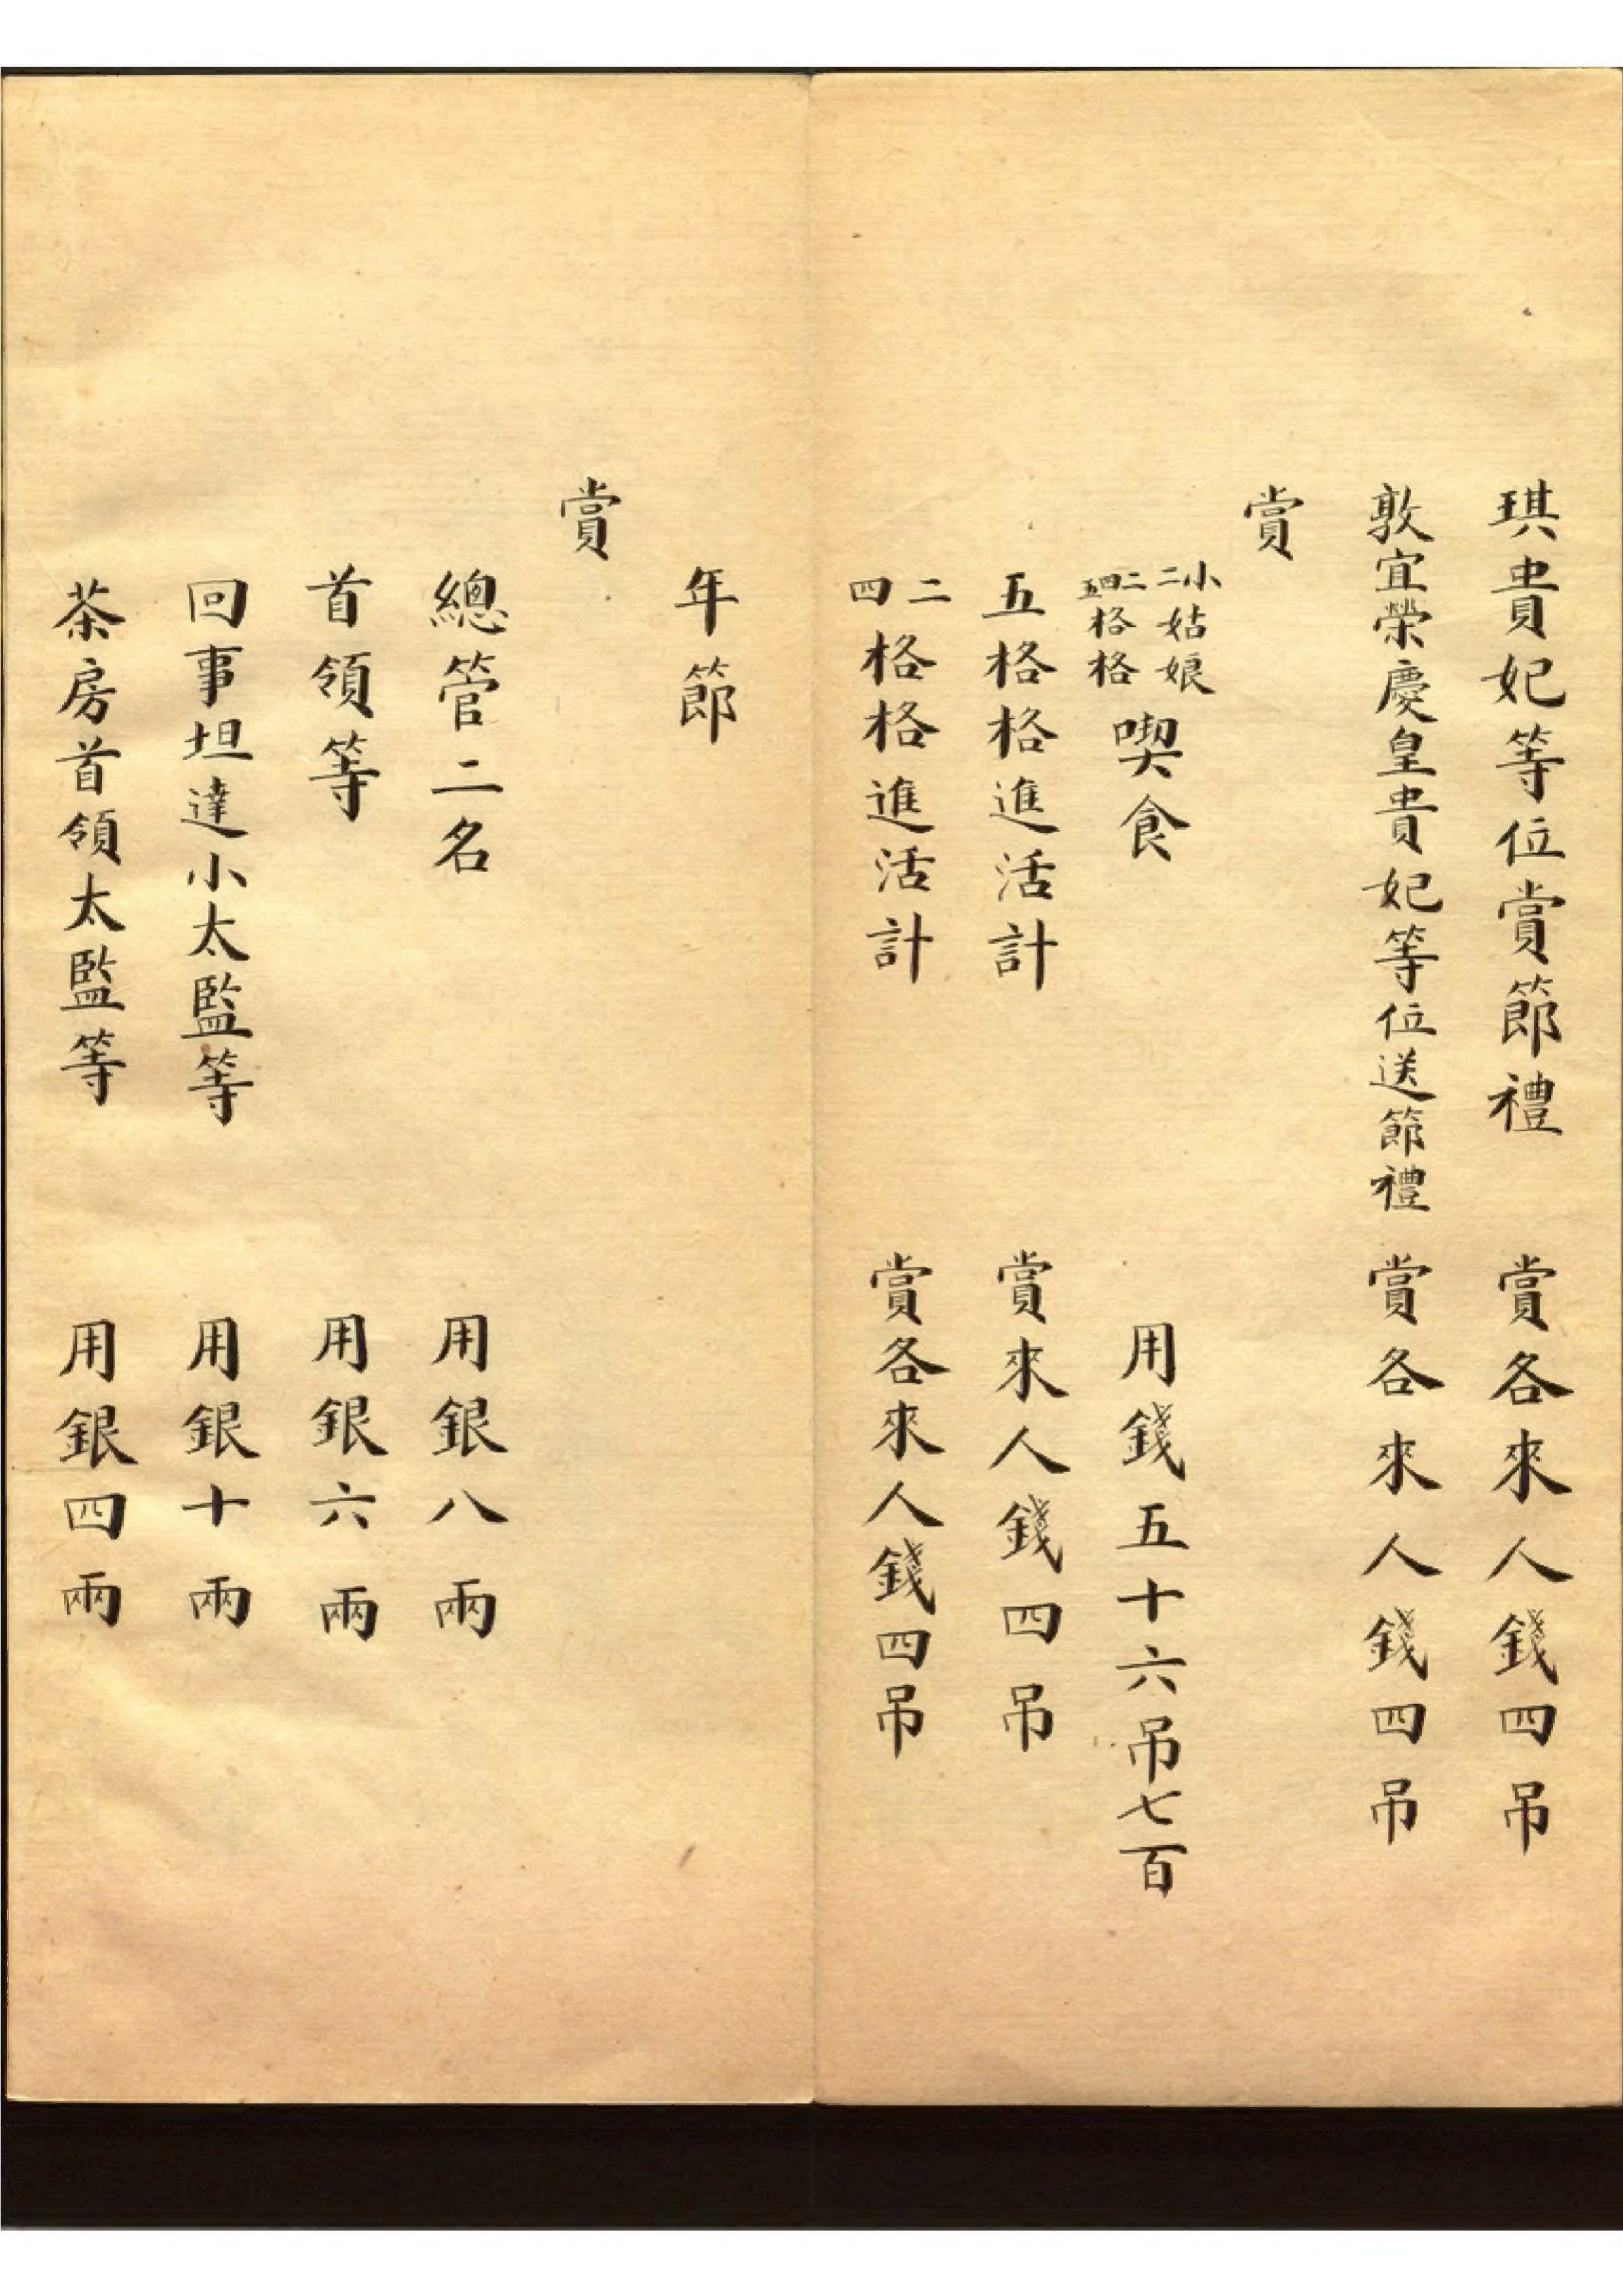 琪貴妃等位賞節禮 賞各來人錢四吊
敦宜榮慶皇貴妃等位送節禮 賞各來人錢四吊
賞
小二姑娘二四五格格喫食 用錢五十六吊七百
五格格進活計 賞來人錢四吊
二四格格進活計 賞各來人錢四吊
年節
賞
總管二名 用銀八兩
首領等 用銀六兩
回事坦達小太監等 用銀十兩
茶房首領太監等 用銀四兩